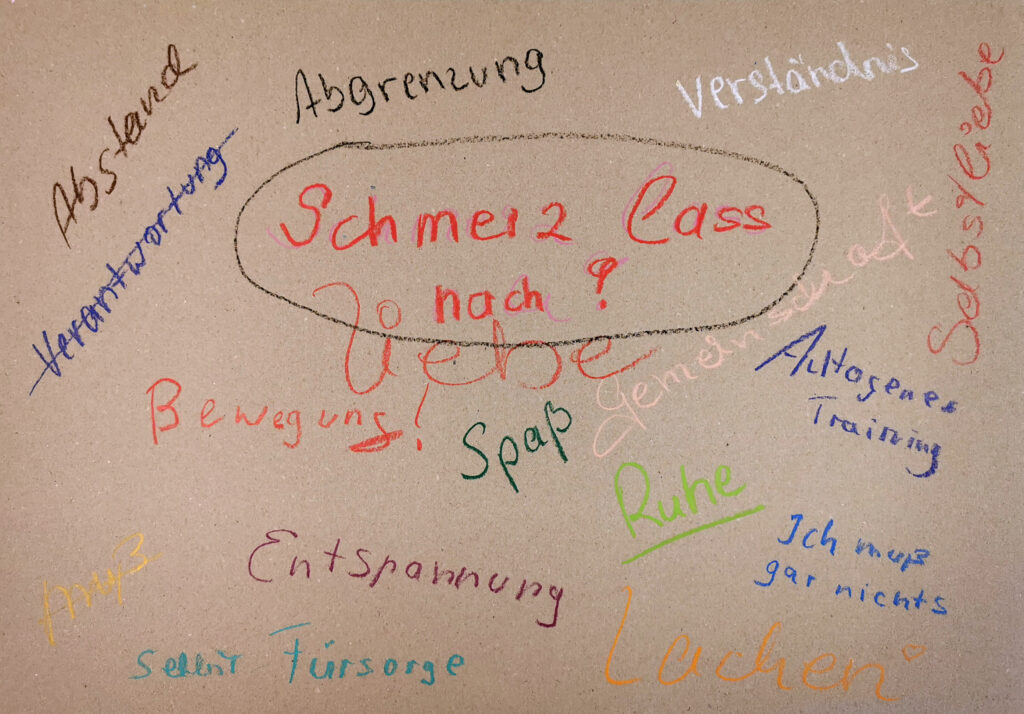 Abstand
Abgrenzung
Verständnis
Selbstliebe
Verantwortung
Schmerz lass
nach?
Liebe
Gemeinschaft
Autogenes
Training
Bewegung!
Spaß
Ruhe
Ich muß
gar nichts
muß
Entspannung
Selbst Fürsorge
Lachen